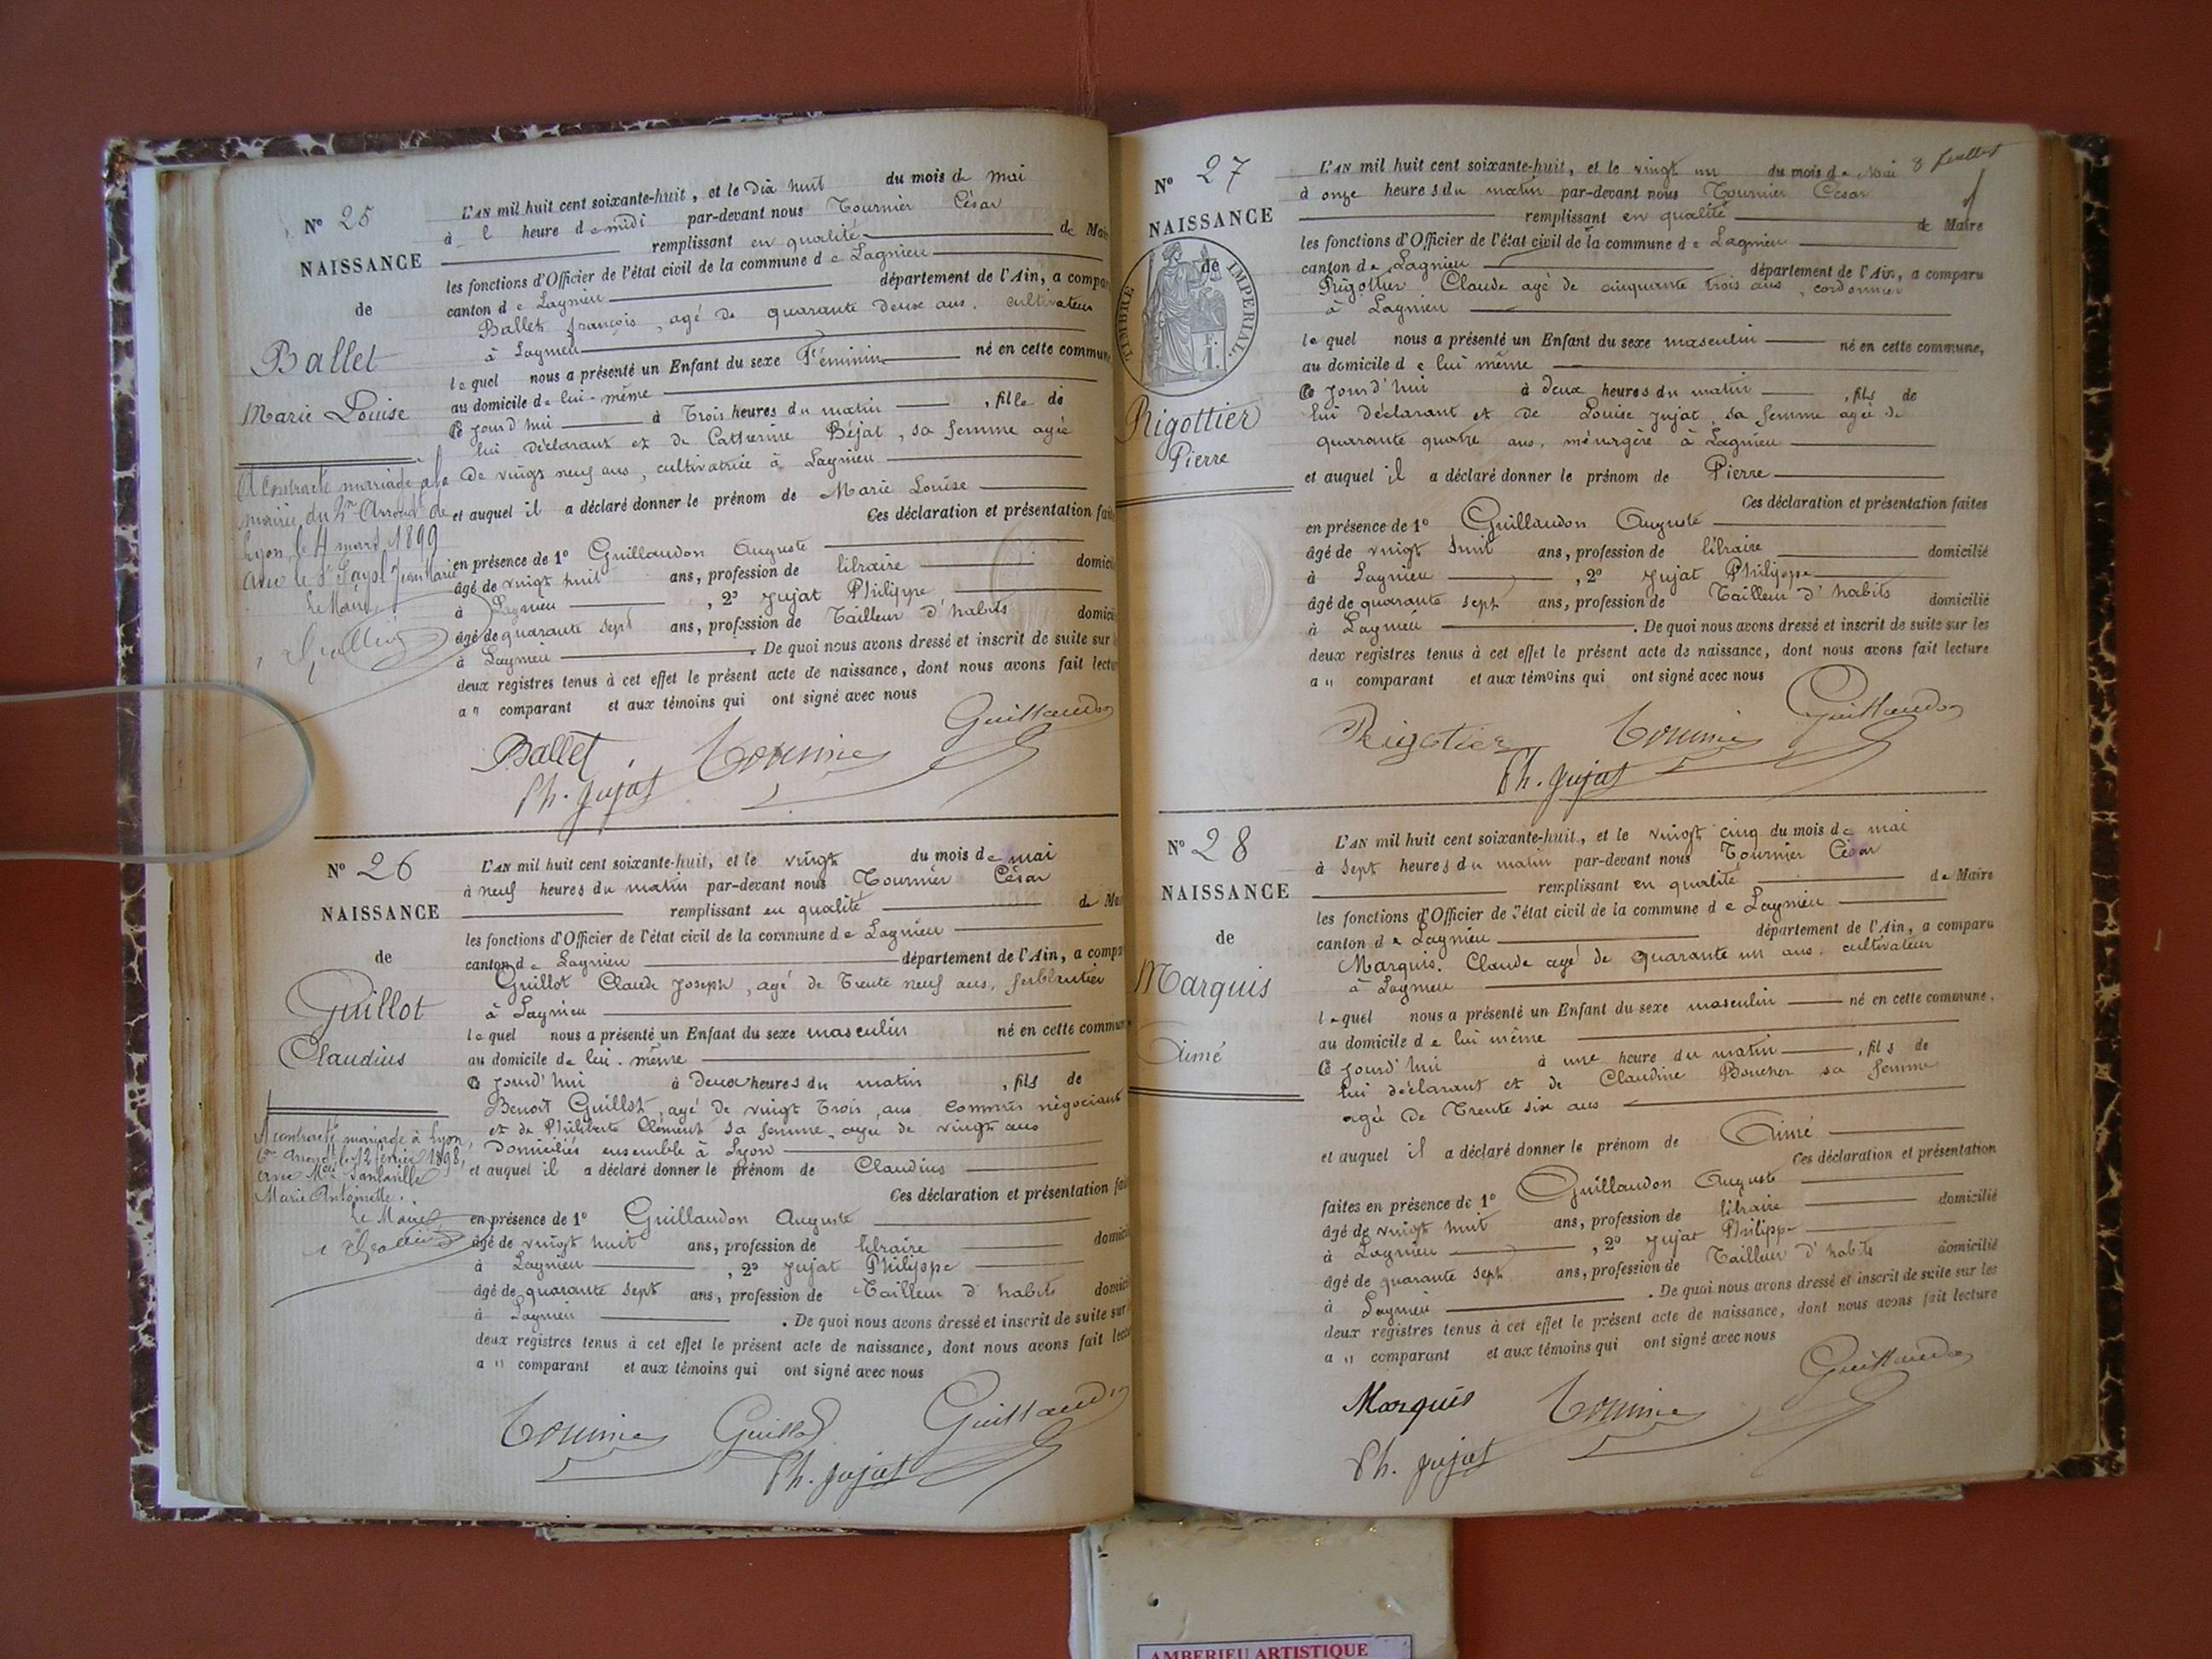 Nº 25
NAISSANCE
de
Ballet
Marie Louise
A contracté mariage à la
mairie du 2me Arrondt de
Lyon, le 4 mars 1899
avec le Sr Jean Marie
Le Maire,
L'AN mil huit cent soixante-huit, et le dix huit du mois de mai
à l heure de midi par-devant nous Tournier César
remplissant en qualité de Mai
les fonctions d'Officier de l'état civil de la commune de Lagnieu
canton de Lagnieu département de l'Ain, a compa
Ballet françois, agé de quarante deux ans, cultivateur
à Lagnieu
lequel nous a présenté un Enfant du sexe Féminin né en cette commun
au domicile de lui-même
Ce jourd'hui à Trois heures du matin, fille de
lui déclarant et de Catherine Béjat, sa femme agée
de vingt neuf ans, cultivatrice à Lagnieu
et auquel il a déclaré donner le prénom de Marie Louise
Ces déclaration et présentation fait
en présence de 1º Guillaudon Auguste
âgé de vingt huit ans, profession de libraire domici
à Lagnieu, 2º Jujat Philippe
âgé de quarante sept ans, profession de Tailleur d'habits domici
à Lagnieu. De quoi nous avons dressé et inscrit de suite sur l
deux registres tenus à cet effet le présent acte de naissance, dont nous avons fait lectu
a " comparant et aux témoins qui ont signé avec nous
Guillaudon
Ballet Tournier
Ph. Jujat
Nº 26
NAISSANCE
de
Guillot
Claudius
A contracté mariage à Lyon,
6me Arrondt le 12 février 1898,
avec Melle
Marie Antoinette.
Le Maire
L'AN mil huit cent soixante-huit, et le vingt du mois de mai
à neuf heures du matin par-devant nous Tournier César
remplissant en qualité de Mai
les fonctions d'Officier de l'état civil de la commune de Lagnieu
canton de Lagnieu département de l'Ain, a compa
Guillot Claude Joseph, agé de Trente neuf ans, ferblantier
à Lagnieu
lequel nous a présenté un Enfant du sexe masculin né en cette commun
au domicile de lui-même
Ce jourd'hui à Deux heures du matin, fils de
Benoît Guillot, agé de vingt Trois ans, commis négociant
et de Philiberte Clément sa femme, agée de vingt ans
Domiciliés ensemble à Lyon
et auquel il a déclaré donner le prénom de Claudius
Ces déclaration et présentation fai
en présence de 1º Guillaudon Auguste
âgé de vingt huit ans, profession de libraire domici
à Lagnieu, 2º Jujat Philippe
âgé de quarante sept ans, profession de Tailleur d'habits domici
à Lagnieu. De quoi nous avons dressé et inscrit de suite sur
deux registres tenus à cet effet le présent acte de naissance, dont nous avons fait lectu
a " comparant et aux témoins qui ont signé avec nous
Tournier Guillot Guillaud
Ph. Jujat
8 feuillet
Nº 27
NAISSANCE
de
TIMBRE IMPERIAL.
Rigottier
Pierre
L'AN mil huit cent soixante-huit, et le vingt un du mois de Mai
à onze heures du matin par-devant nous Tournier César
remplissant en qualité de Maire
les fonctions d'Officier de l'état civil de la commune de Lagnieu
canton de Lagnieu département de l'Ain, a comparu
Rigottier Claude agé de cinquante trois ans, cordonnier
à Lagnieu
lequel nous a présenté un Enfant du sexe masculin né en cette commune,
au domicile de lui même
Ce jourd'hui à deux heures du matin, fils de
lui déclarant et de Louise Jujat, sa femme agée de
quarante quatre ans, ménagère à Lagnieu
et auquel il a déclaré donner le prénom de Pierre
Ces déclaration et présentation faites
en présence de 1º Guillaudon Auguste
âgé de vingt huit ans, profession de libraire domicilié
à Lagnieu, 2º Jujat Philippe
âgé de quarante sept ans, profession de Tailleur d'habits domicilié
à Lagnieu. De quoi nous avons dressé et inscrit de suite sur les
deux registres tenus à cet effet le présent acte de naissance, dont nous avons fait lecture
a " comparant et aux témoins qui ont signé avec nous
Rigotier Tournier Guillaudon
Ph. Jujat
Nº 28
NAISSANCE
de
Marquis
Aimé
L'AN mil huit cent soixante-huit, et le vingt cinq du mois de mai
à sept heures du matin par-devant nous Tournier César
remplissant en qualité de Maire
les fonctions d'Officier de l'état civil de la commune de Lagnieu
canton de Lagnieu département de l'Ain, a comparu
Marquis, Claude agé de quarante un ans, cultivateur
à Lagnieu
lequel nous a présenté un Enfant du sexe masculin né en cette commune,
au domicile de lui même
Ce jourd'hui à une heure du matin, fils de
lui déclarant et de Claudine Boucher sa femme
agée de Trente six ans
et auquel il a déclaré donner le prénom de Aimé
Ces déclaration et présentation
faites en présence de 1º Guillaudon Auguste
âgé de vingt huit ans, profession de libraire domicilié
à Lagnieu, 2º Jujat Philippe
âgé de quarante sept ans, profession de Tailleur d'habits domicilié
à Lagnieu. De quoi nous avons dressé et inscrit de suite sur les
deux registres tenus à cet effet le présent acte de naissance, dont nous avons fait lecture
a " comparant et aux témoins qui ont signé avec nous
Guillaudon
Marquis Tournier
Ph. Jujat
AMBERIEU ARTISTIQUE